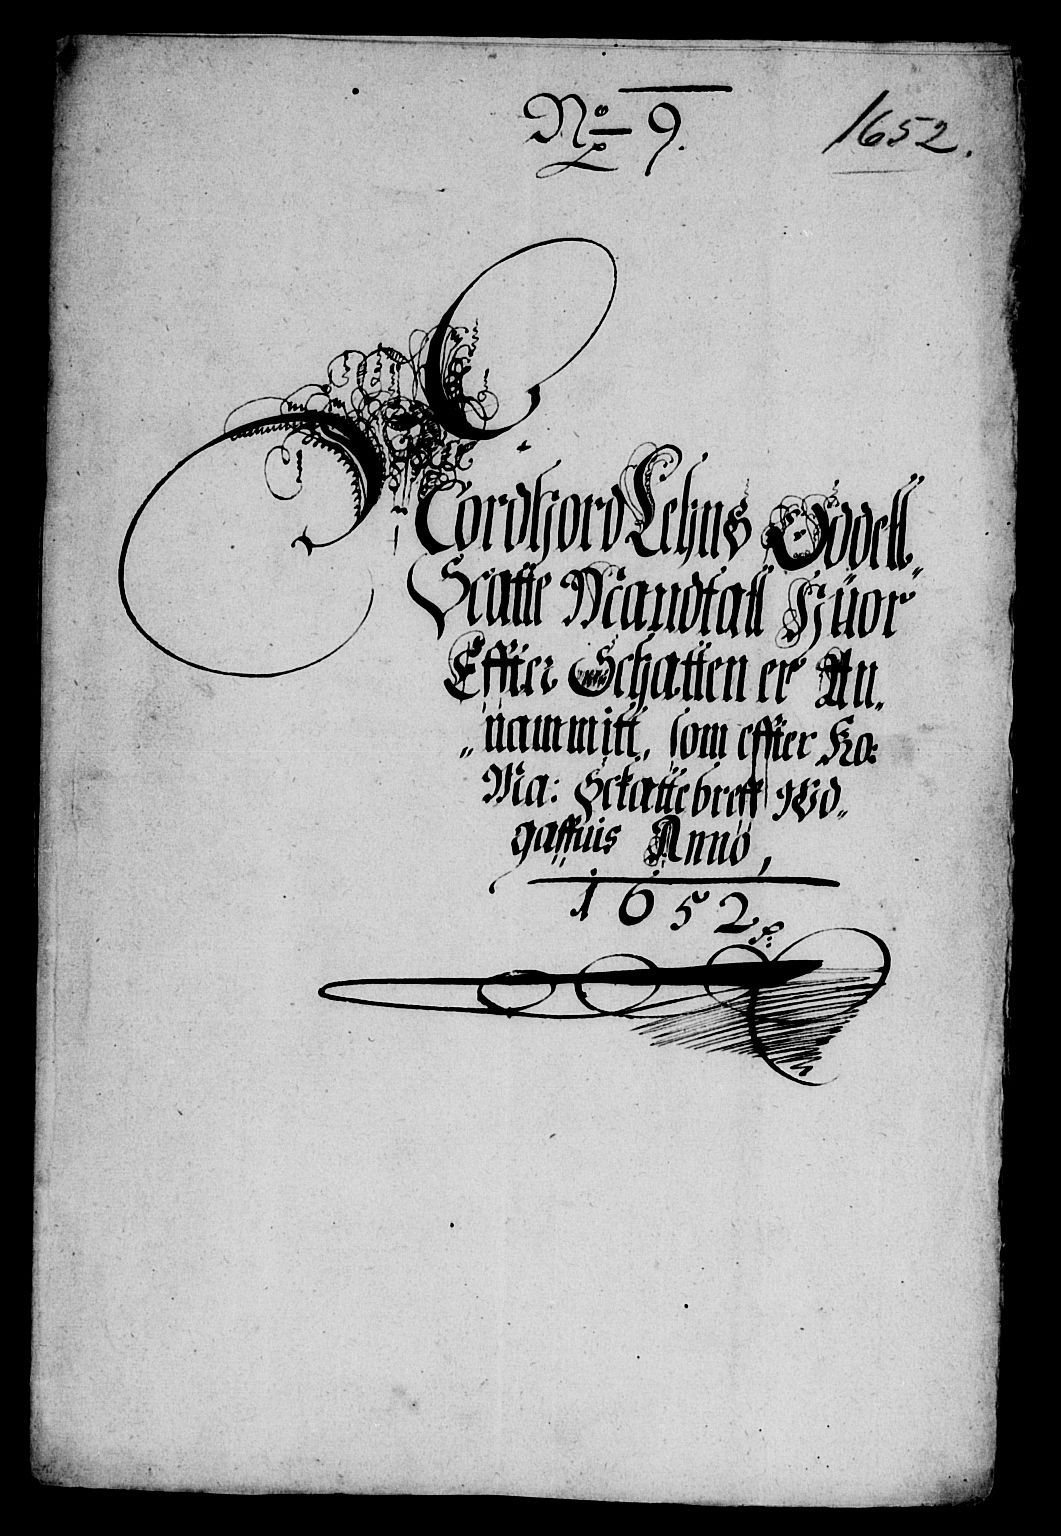 No 9.
1652.
Nordfiord Lehns Oddell,,
Scatte Mandtall Huor
Effter Schatten er An,,
,,nammitt, som effter Ko:
Ma: Sckattebreff Wd,,
gaffuis Anno,
1652